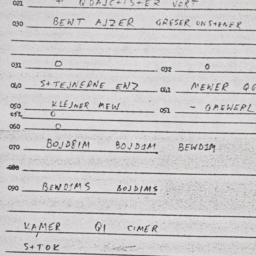 021
030 BEWT AJZER GRESER UNSTENER
031 O 032 O
040 S+TEJNERNE ENZ 041 MEWER
050 KLEJNER MEW 051 -
052 O
060 O
070 BOJDEIM BOJDJM BEWDJM
080
090 BEWDJMS BOJDJMS
KAMER QI CIMER
S+TOK